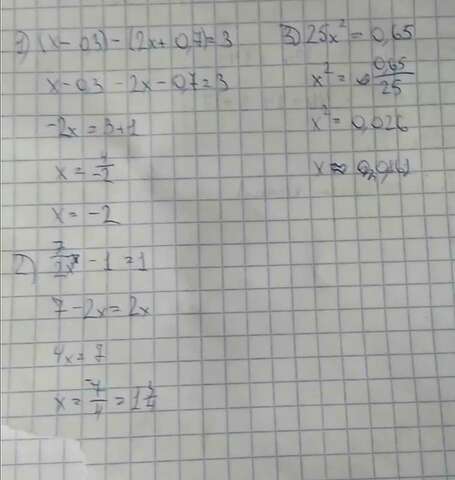 1) (x-0,3)-(2x+0,7)=3
x-0,3-2x-0,7=3
-2x=3+1
x=4/-2
x=-2
2) 7/2x -1=1
7-2x=2x
4x=7
x=7/4=1 3/4
3) 25x²=0,65
x²=0,65/25
x²=0,026